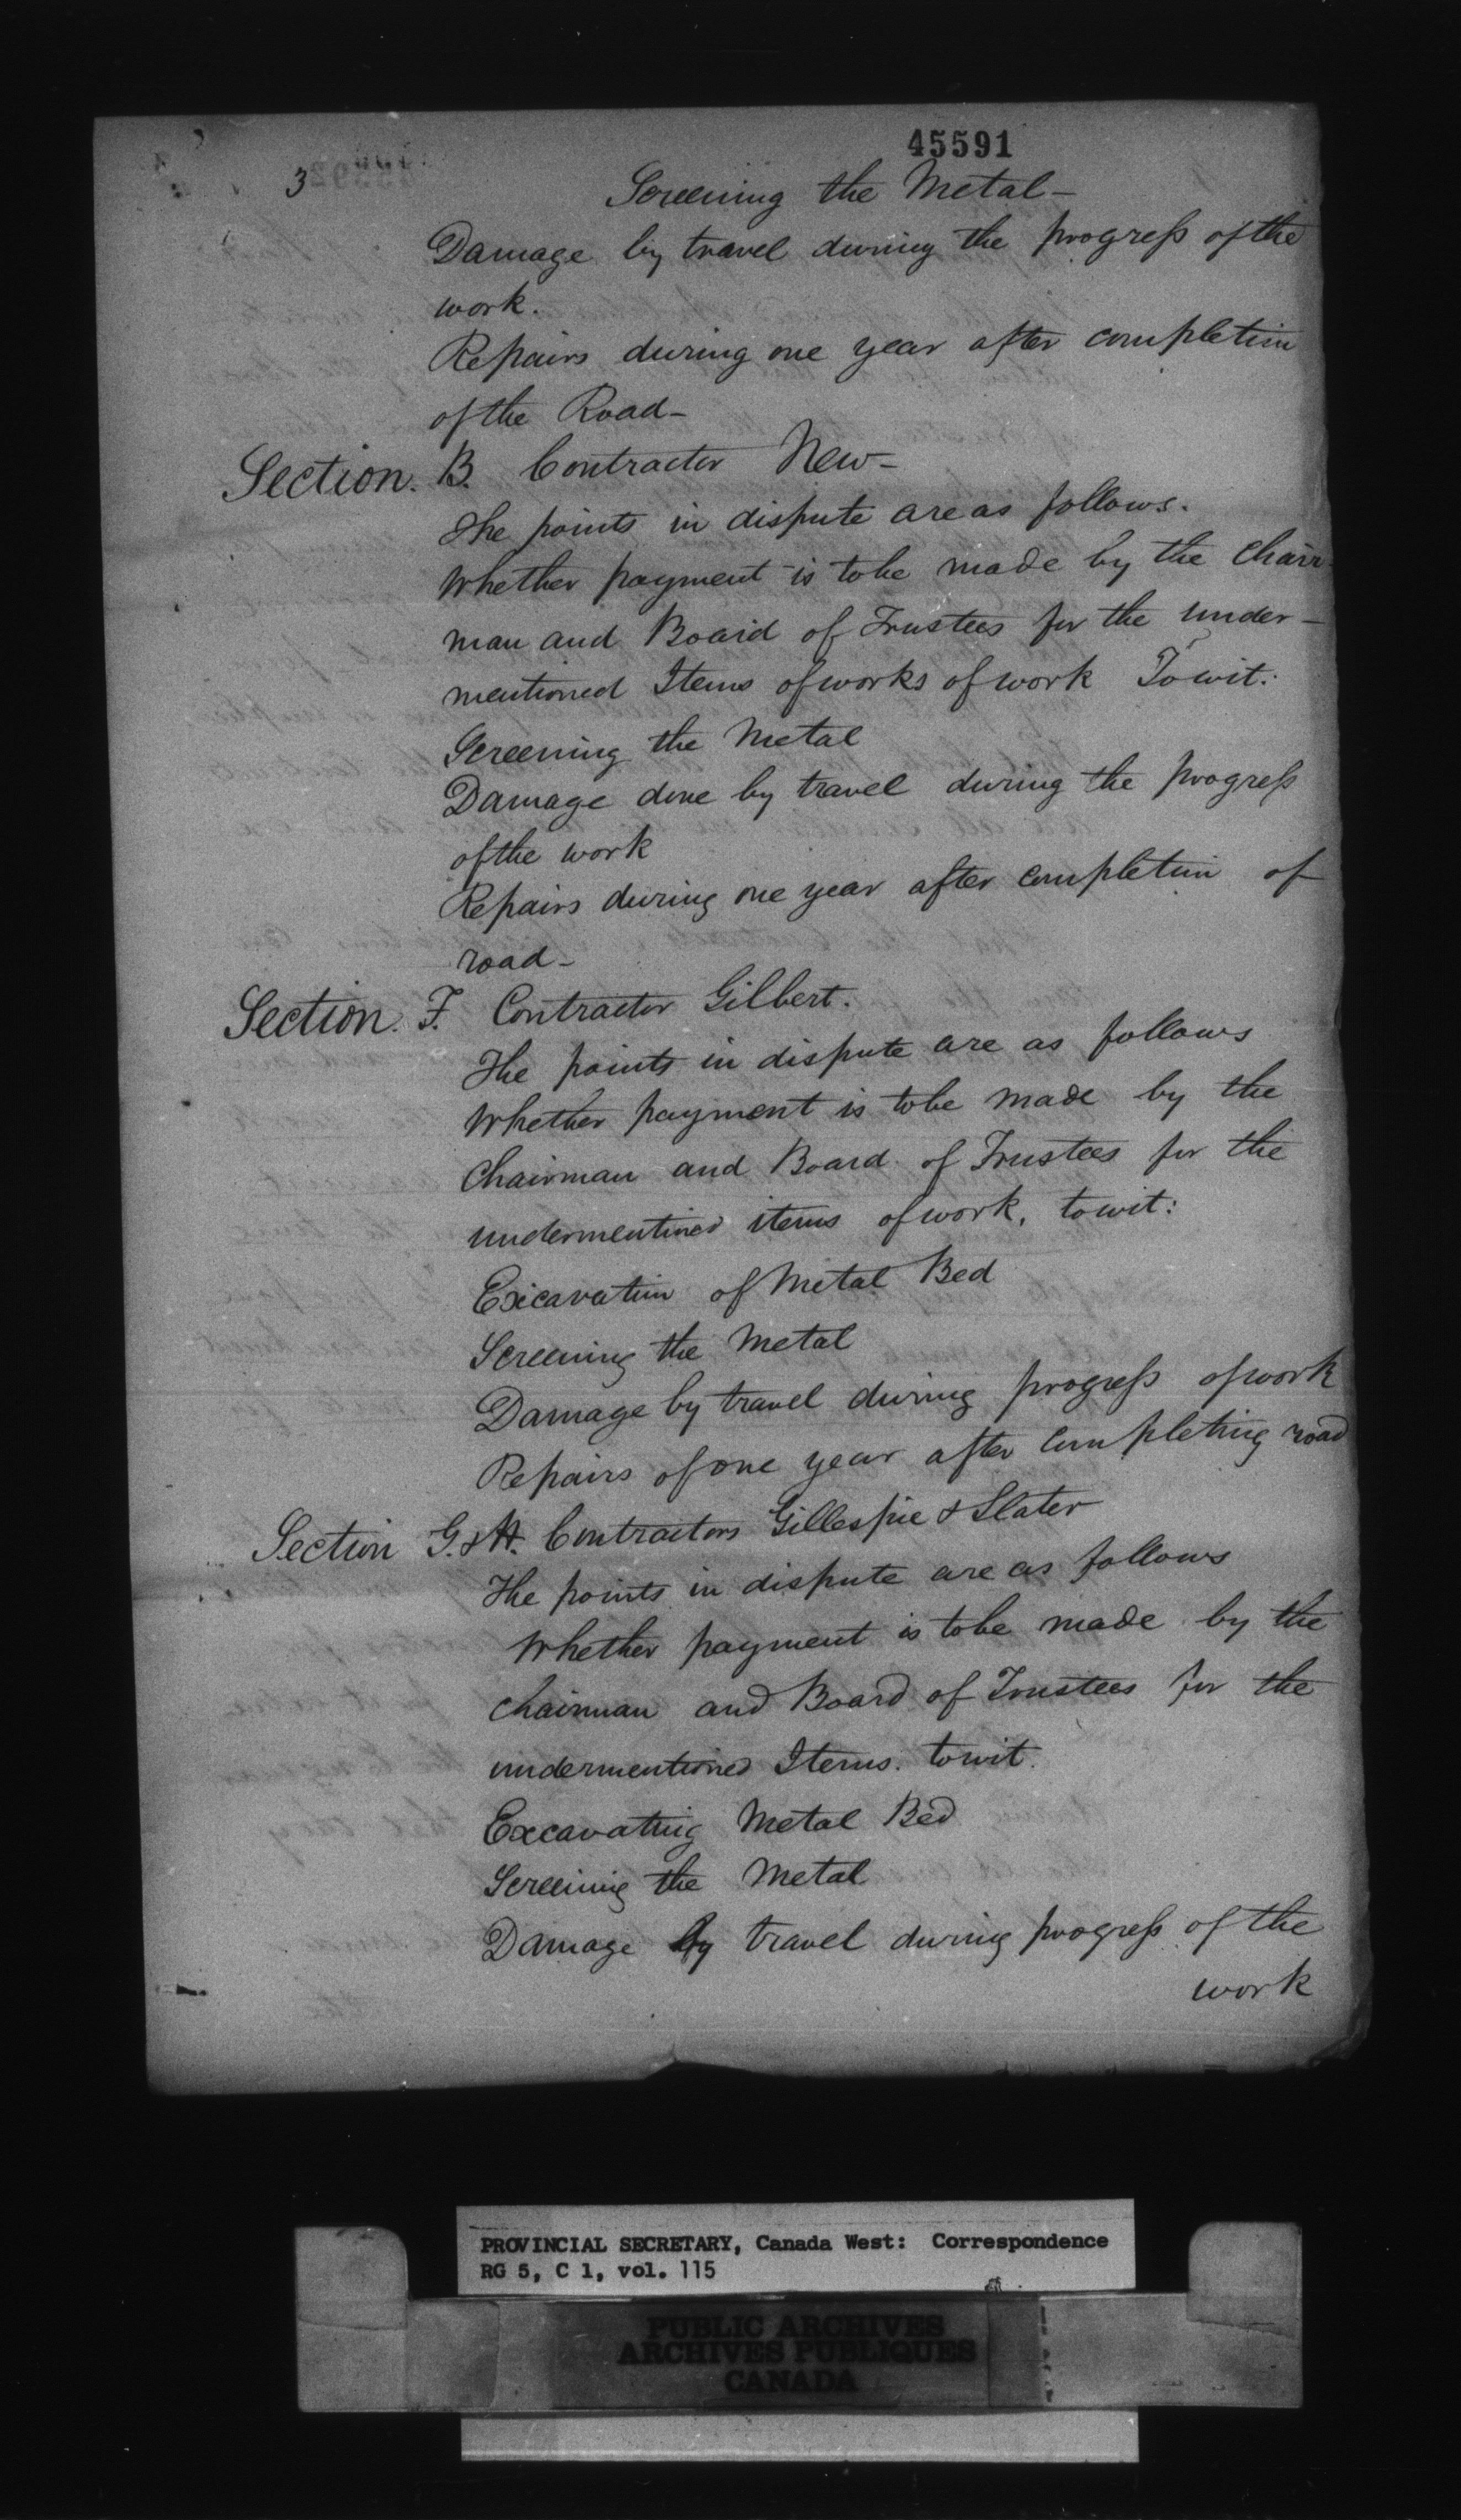 45591
3
Screening the Metal-
Damage by travel during the progress of the
work.
Repairs during one year after completion
of the Road-
Section. B. Contractor New-
The points in dispute are as follows.
Whether payment is to be made by the Chair
man and Board of Trustees for the under-
mentioned Items of works of work To wit:
Screening the Metal
Damage done by travel during the progress
of the work
Repairs during one year after completion of
road-
Section. F. Contractor Gilbert.
The points in dispute are as follows
Whether payment is to be made by the
Chairman and Board of Trustees for the
undermentioned items of work, to wit:
Exicavation of Metal Bed
Screening the Metal
Damage by travel during progress of work
Repairs of one year after completing road
Section G. & H. Contractors Gillespie & Slater
The points in dispute are as follows
Whether payment is to be made by the
Chairman and Board of Trustees for the
undermentioned Items. to wit.
Excavating Metal Bed
Screening the Metal
Damage by travel during progress of the
work
PROVINCIAL SECRETARY, Canada West: Correspondence
RG 5, C 1, vol. 115
PUBLIC ARCHIVES
ARCHIVES PUBLIQUES
CANADA